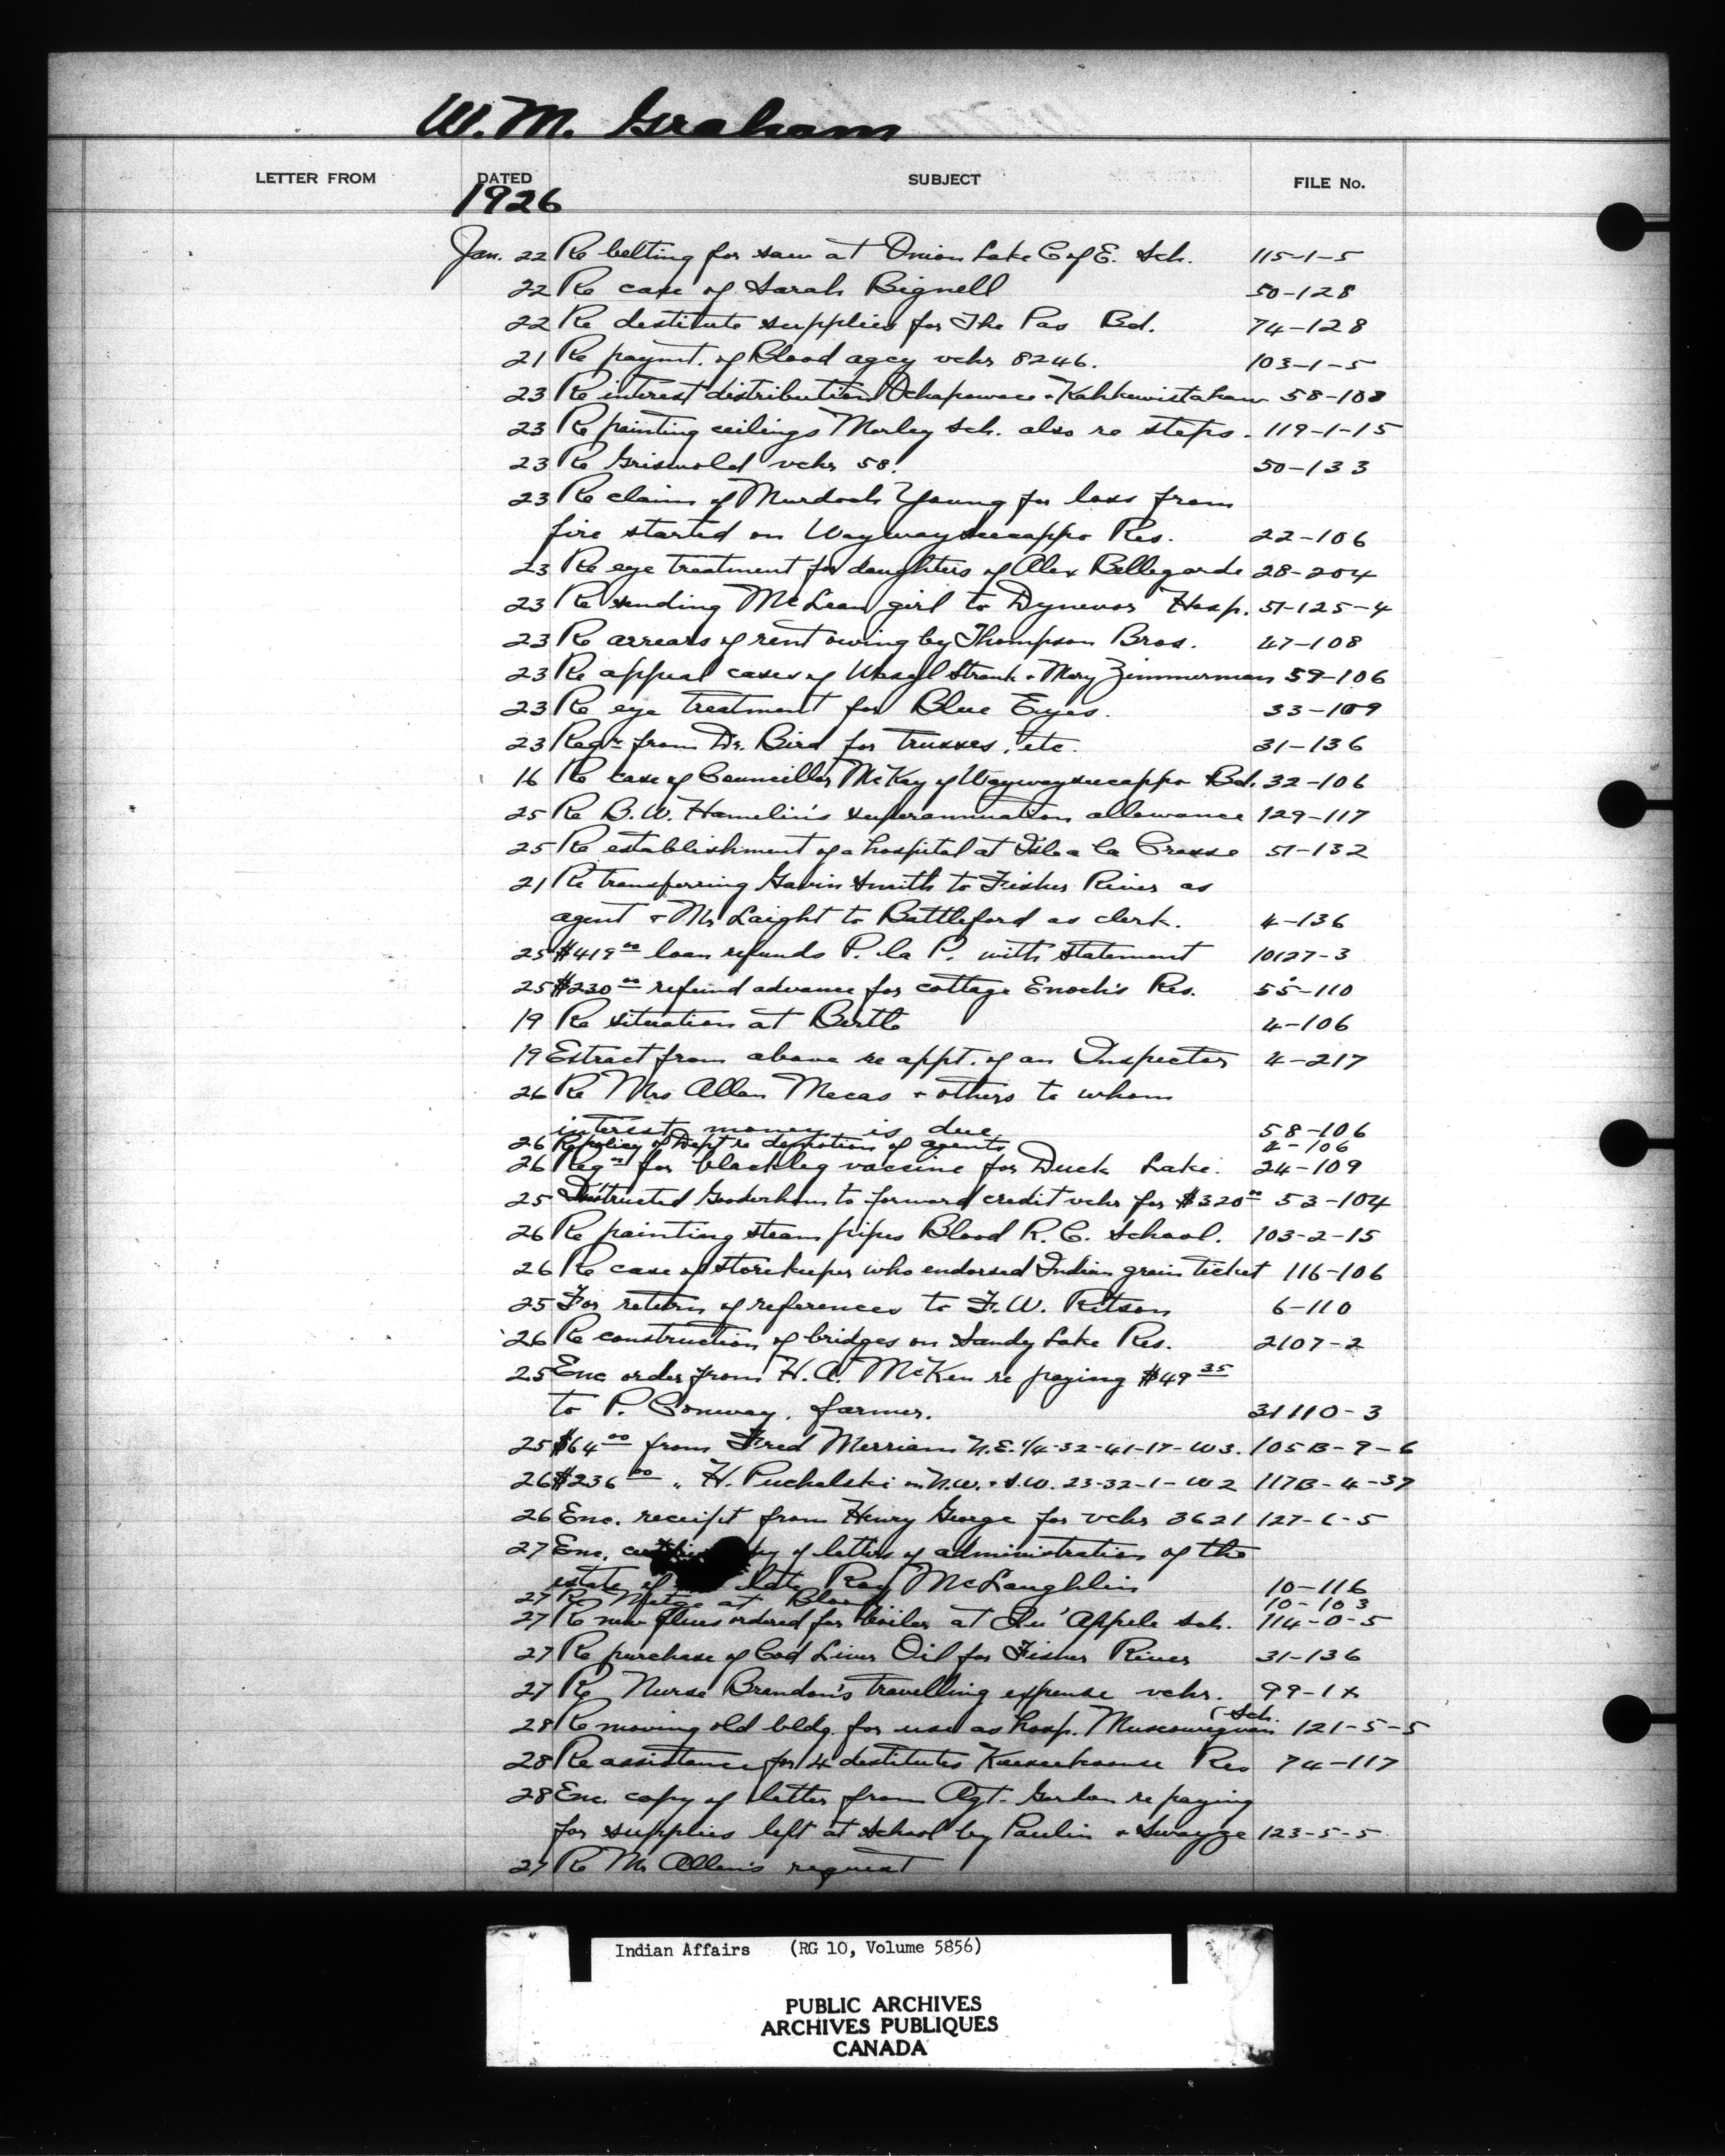 W. M. Graham
LETTER FROM DATED SUBJECT FILE No.
1926
Jan. 22 Re belting for saw at Onion Lake C of E. Sch. 115-1-5
22 Re case of Sarah Bignell 50-128
22 Re destitute supplies for The Pas Bd. 74-128
21 Re paymt. of Blood agcy vchr 8246. 103-1-5
23 Re interest distribution Ochapowace + Kahkewistahaw 58-108
23 Re painting ceilings Morley Sch. also re steps. 119-1-15
23 Re Griswold vchr 58. 50-133
23 Re claim of Murdoch Young for loss from
fire started on Waywayseecappo Res. 22-106
23 Re eye treatment for daughters of Alex Bellegarde 28-204
23 Re sending McLean girl to Dynevor Hosp. 51-125-4
23 Re arrears of rent owing by Thompson Bros. 47-108
23 Re appeal cases of Wasyl + Mary Zimmerman 59-106
23 Re eye treatment for Blue Eyes. 33-109
23 Reqn from Dr. Bird for trusses, etc. 31-136
16 Re case of Councillor McKay of Waywayseecappo Bd. 32-106
25 Re B. W. Hamelin's superannuation allowance 129-117
25 Re establishment of a hospital at Isle a la Crosse 51-132
21 Re transferring Gavin Smith to Fisher River as
agent + Mr Laight to Battleford as clerk. 4-136
25 $419 00 loan refunds P. la P. with statement 10127-3
25 $230 00 refund advance for cottage Enoch's Res. 55-110
19 Re situation at Birtle 4-106
19 Extract from above re appt. of an Inspector 4-217
26 Re Mrs Allan Mecas + others to whom
interest money is due 58-106
26 Re policy of Dept re demotion of agents 2-106
26 Reqn for blackleg vaccine for Duck Lake. 24-109
25 Instructed Gooderham to forward credit vchr for $320 00 53-104
26 Re painting steam pipes Blood R. C. School. 103-2-15
26 Re case of storekeeper who endorsed Indian grain ticket 116-106
25 For return of references to F. W. Ritson 6-110
26 Re construction of bridges on Sandy Lake Res. 2107-2
25 Enc order from H. A. McKen re paying $49 35
to P. Conway, farmer. 31110-3
25 $64 00 from Fred Merriam N.E.1/4-32-41-17-W3. 105B-9-6
26 $236 00 " H. Puchalski on N.W. + S.W. 23-32-1-W2 117B-4-37
26 Enc. receipt from Henry George for vchr 3621 127-6-5
27 Enc. of letters of administration of the
estate of late Roy McLaughlin 10-116
27 Re at Blood 10-103
27 Re new flues ordered for boiler at Qu'Appelle Sch. 114-0-5
27 Re purchase of Cod Liver Oil for Fisher River 31-136
27 Re Nurse Brendon's travelling expense vchr. 99-1x
28 Re moving old bldg. for use as hosp. Muscowequan Sch. 121-5-5
28 Re assistance for 4 destitutes Res 74-117
28 Enc. copy of letter from Agt. Gordon re paying
for supplies left at school by Paulin + Swayze 123-5-5
27 Re Mr Allen's request
Indian Affairs (RG 10, Volume 5856)
PUBLIC ARCHIVES
ARCHIVES PUBLIQUES
CANADA